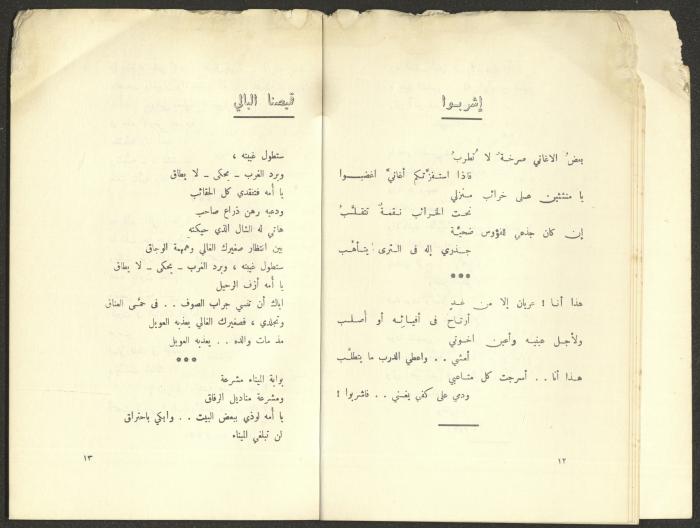 إشربوا
بعضُ الاغاني صرخة لا تُطربُ
فاذا استفزّتكم أغانيَّ اغضبوا
يا منشئين على خرائب منزلي
تحت الخرائب نقمةٌ تتقلّبُ
إن كان جذعي للفؤوس ضحيّة
جذري إله في الثرى يتأهّب
***
هذا أنا ! عريان إلا من غدٍ
أرتاح في أفيائه أو أصلب
ولأجل عينيه وأعين اخوتي
أمشي . . واعطي الدرب ما يتطلّب
هذا أنا . . أسرجت كل متاعبي
ودمي على كفي يغني . . فاشربوا !
١٢
قميصنا البالي
ستطول غيبته ،
وبرد الغرب ـ يحكى ـ لا يطاق
يا أمه فتفقدي كل الحقائب
ودعيه رهن ذراع صاحب
هاتي له الشال الذي حيكته
بين انتظار صغيرك الغالي وهمهمة الوجاق
ستطول غيبته ، وبرد الغرب ـ يحكى ـ لا يطاق
يا أمه أزف الرحيل
اياك أن تنسي جراب الصوف . . في حمّى العناق
وتجلدي ، فصغيرك الغالي يعذبه العويل
مذ مات والده . . يعذبه العويل
***
بوابة الميناء مشرعة
ومشرعة مناديل الرفاق
يا أمه لوذي ببعض البيت . . وابكي باحتراق
لن تبلغي الميناء
١٣